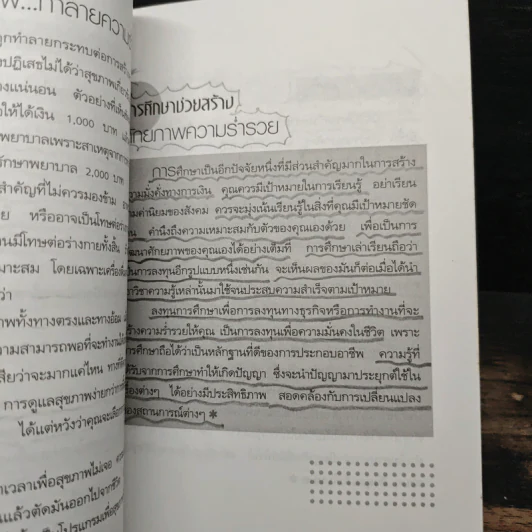 ูกทำลายกระทบต่อการสร้
งปฏิเสธไม่ได้ว่าสุขภาพเกี่ยวข้
องแน่นอน ตัวอย่างที่เห็นชัด
ให้ได้เงิน 1,000 บาท
พยาบาลเพราะสาเหตุจากการ
รักษาพยาบาล 2,000 บาท
สำคัญที่ไม่ควรมองข้าม
หรืออาจเป็นโทษต่อร่าง
นมีโทษต่อร่างกายทั้งสิ้น
มาะสม โดยเฉพาะเครื่องดื่ม
ว่า
าพทั้งทางตรงและทางอ้อม
วามสามารถพอที่จะทำงานได้
สียว่าจะมากแค่ไหน ทางที่ดี
การดูแลสุขภาพง่ายกว่าการ
ได้แต่หวังว่าคุณจะเลือก
าเวลาเพื่อสุขภาพไม่เจอ
แล้วตัดมันออกไปจากชีวิต
เป็นโปรแกรมเพื่อสุขภาพ
การศึกษาช่วยสร้าง
ศักยภาพความร่ำรวย
การศึกษาเป็นอีกปัจจัยหนึ่งที่มีส่วนสำคัญมากในการสร้าง
ความมั่งคั่งทางการเงิน คุณควรมีเป้าหมายในการเรียนรู้ อย่าเรียน
ตามค่านิยมของสังคม ควรจะมุ่งเน้นเรียนรู้ในสิ่งที่คุณมีเป้าหมายชัด
เจน คำนึงถึงความเหมาะสมกับตัวของคุณเองด้วย เพื่อเป็นการ
พัฒนาศักยภาพของคุณเองได้อย่างเต็มที่ การศึกษาเล่าเรียนถือว่า
เป็นการลงทุนอีกรูปแบบหนึ่งเช่นกัน จะเห็นผลของมันก็ต่อเมื่อได้นำ
เอาวิชาความรู้เหล่านั้นมาใช้จนประสบความสำเร็จตามเป้าหมาย
ลงทุนการศึกษาเพื่อการลงทุนทางธุรกิจหรือการทำงานที่จะ
สร้างความร่ำรวยให้คุณ เป็นการลงทุนเพื่อความมั่นคงในชีวิต เพราะ
การศึกษาถือได้ว่าเป็นหลักฐานที่ดีของการประกอบอาชีพ ความรู้ที่
ได้รับจากการศึกษาทำให้เกิดปัญญา ซึ่งจะนำปัญญามาประยุกต์ใช้ใน
เรื่องต่างๆ ได้อย่างมีประสิทธิภาพ สอดคล้องกับการเปลี่ยนแปลง
ของสถานการณ์ต่างๆ *